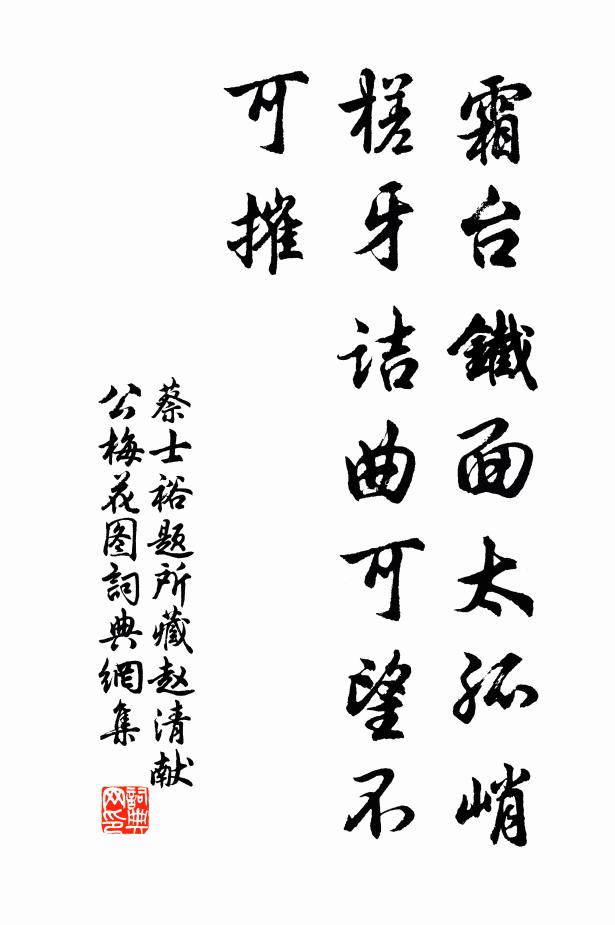 霜台鐵面太孤峭
槎牙诘曲可望不
可摧
蔡士裕题所藏赵清献
公梅花图詞典網集
詞典
网印